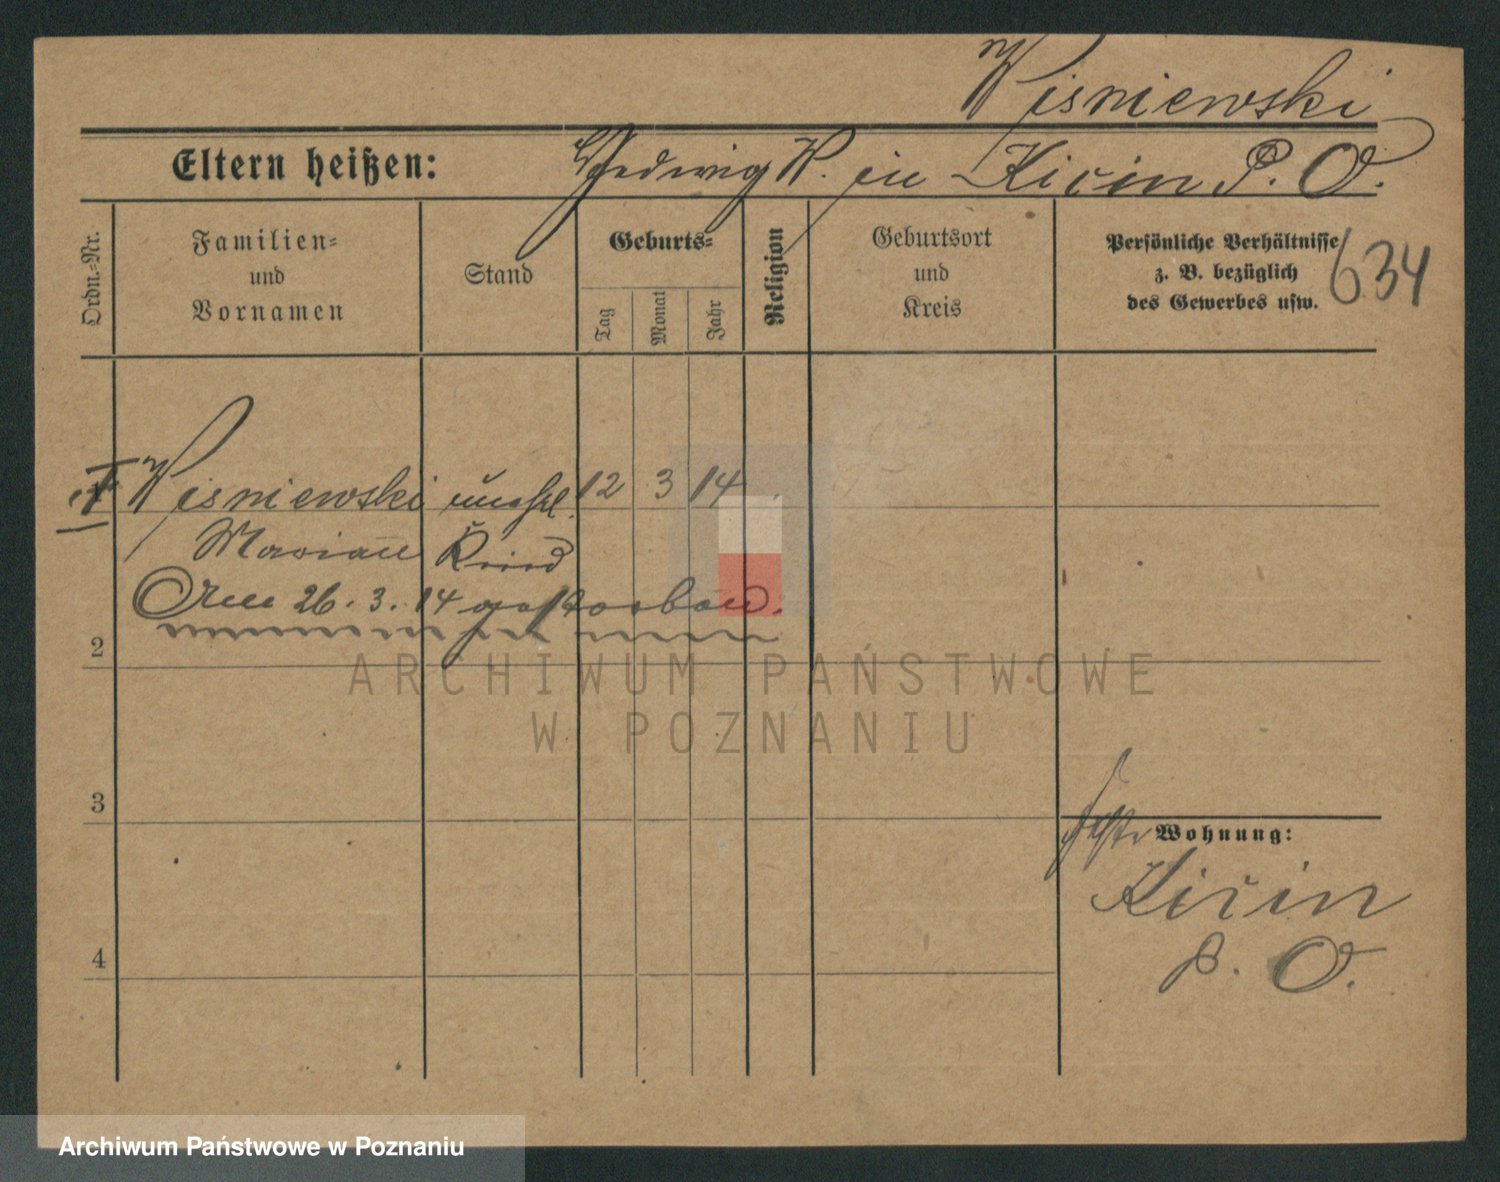 Wisniewski
Eltern heißen: Hedwig W. in Kicin P. O.
Ordn.-Nr.
Familien- und Vornamen
Stand
Geburts-
Tag
Monat
Jahr
Religion
Geburtsort und Kreis
Persönliche Verhältnisse
z. B. bezüglich
des Gewerbes usw.
634
1 Wisniewski unehel. 12 3 14
Marian Kind
Am 26.3.14 gestorben.
2
ARCHIWUM PAŃSTWOWE
W POZNANIU
3
Wohnung:
Kicin
P. O.
4
Archiwum Państwowe w Poznaniu